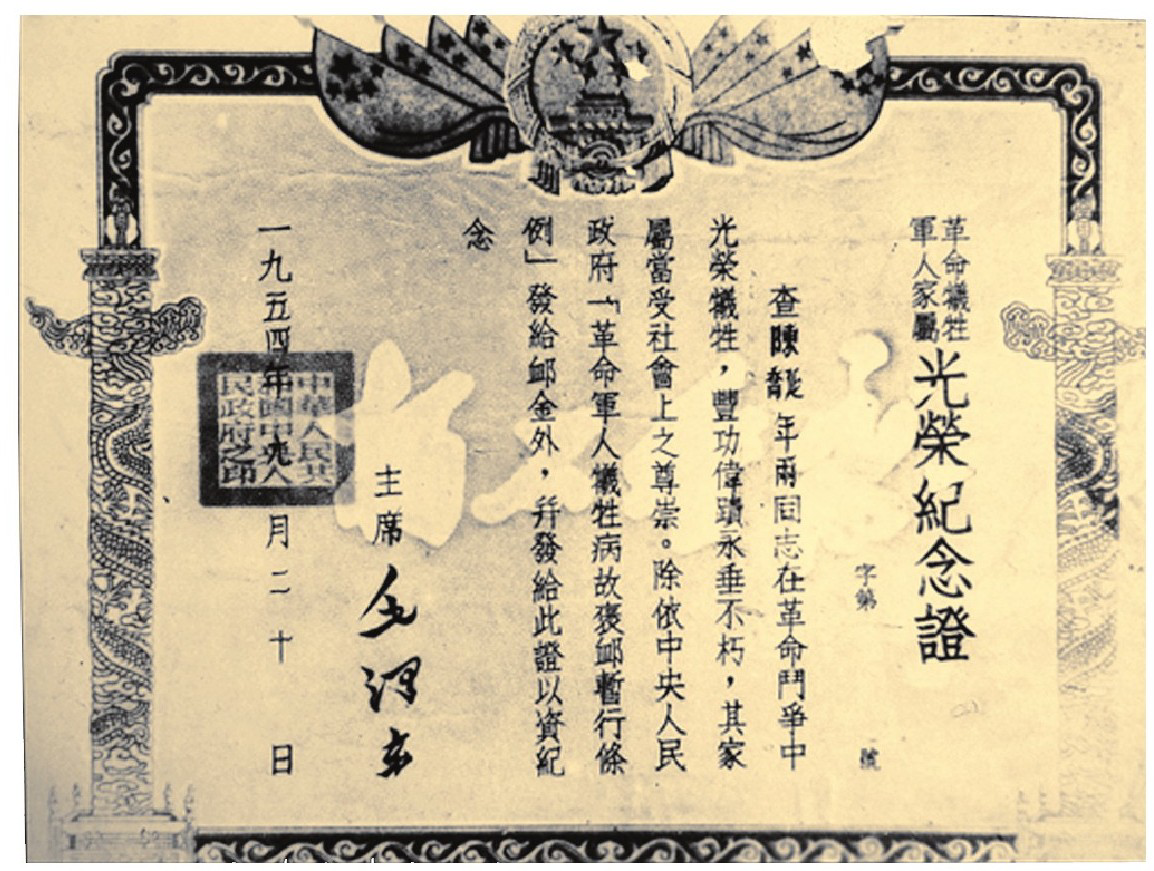 革命犧牲
軍人家屬
光榮紀念證
字第 號
查陳延喬年兩同志在革命鬥爭中
光榮犧牲，豐功偉蹟永垂不朽，其家
屬當受社會上之尊崇。除依中央人民
政府「革命軍人犧牲病故褒卹暫行條
例」發給卹金外，幷發給此證以資紀
念
主席 毛澤東
一九五四年 月二十 日
中華人民共
和國中央人
民政府之印